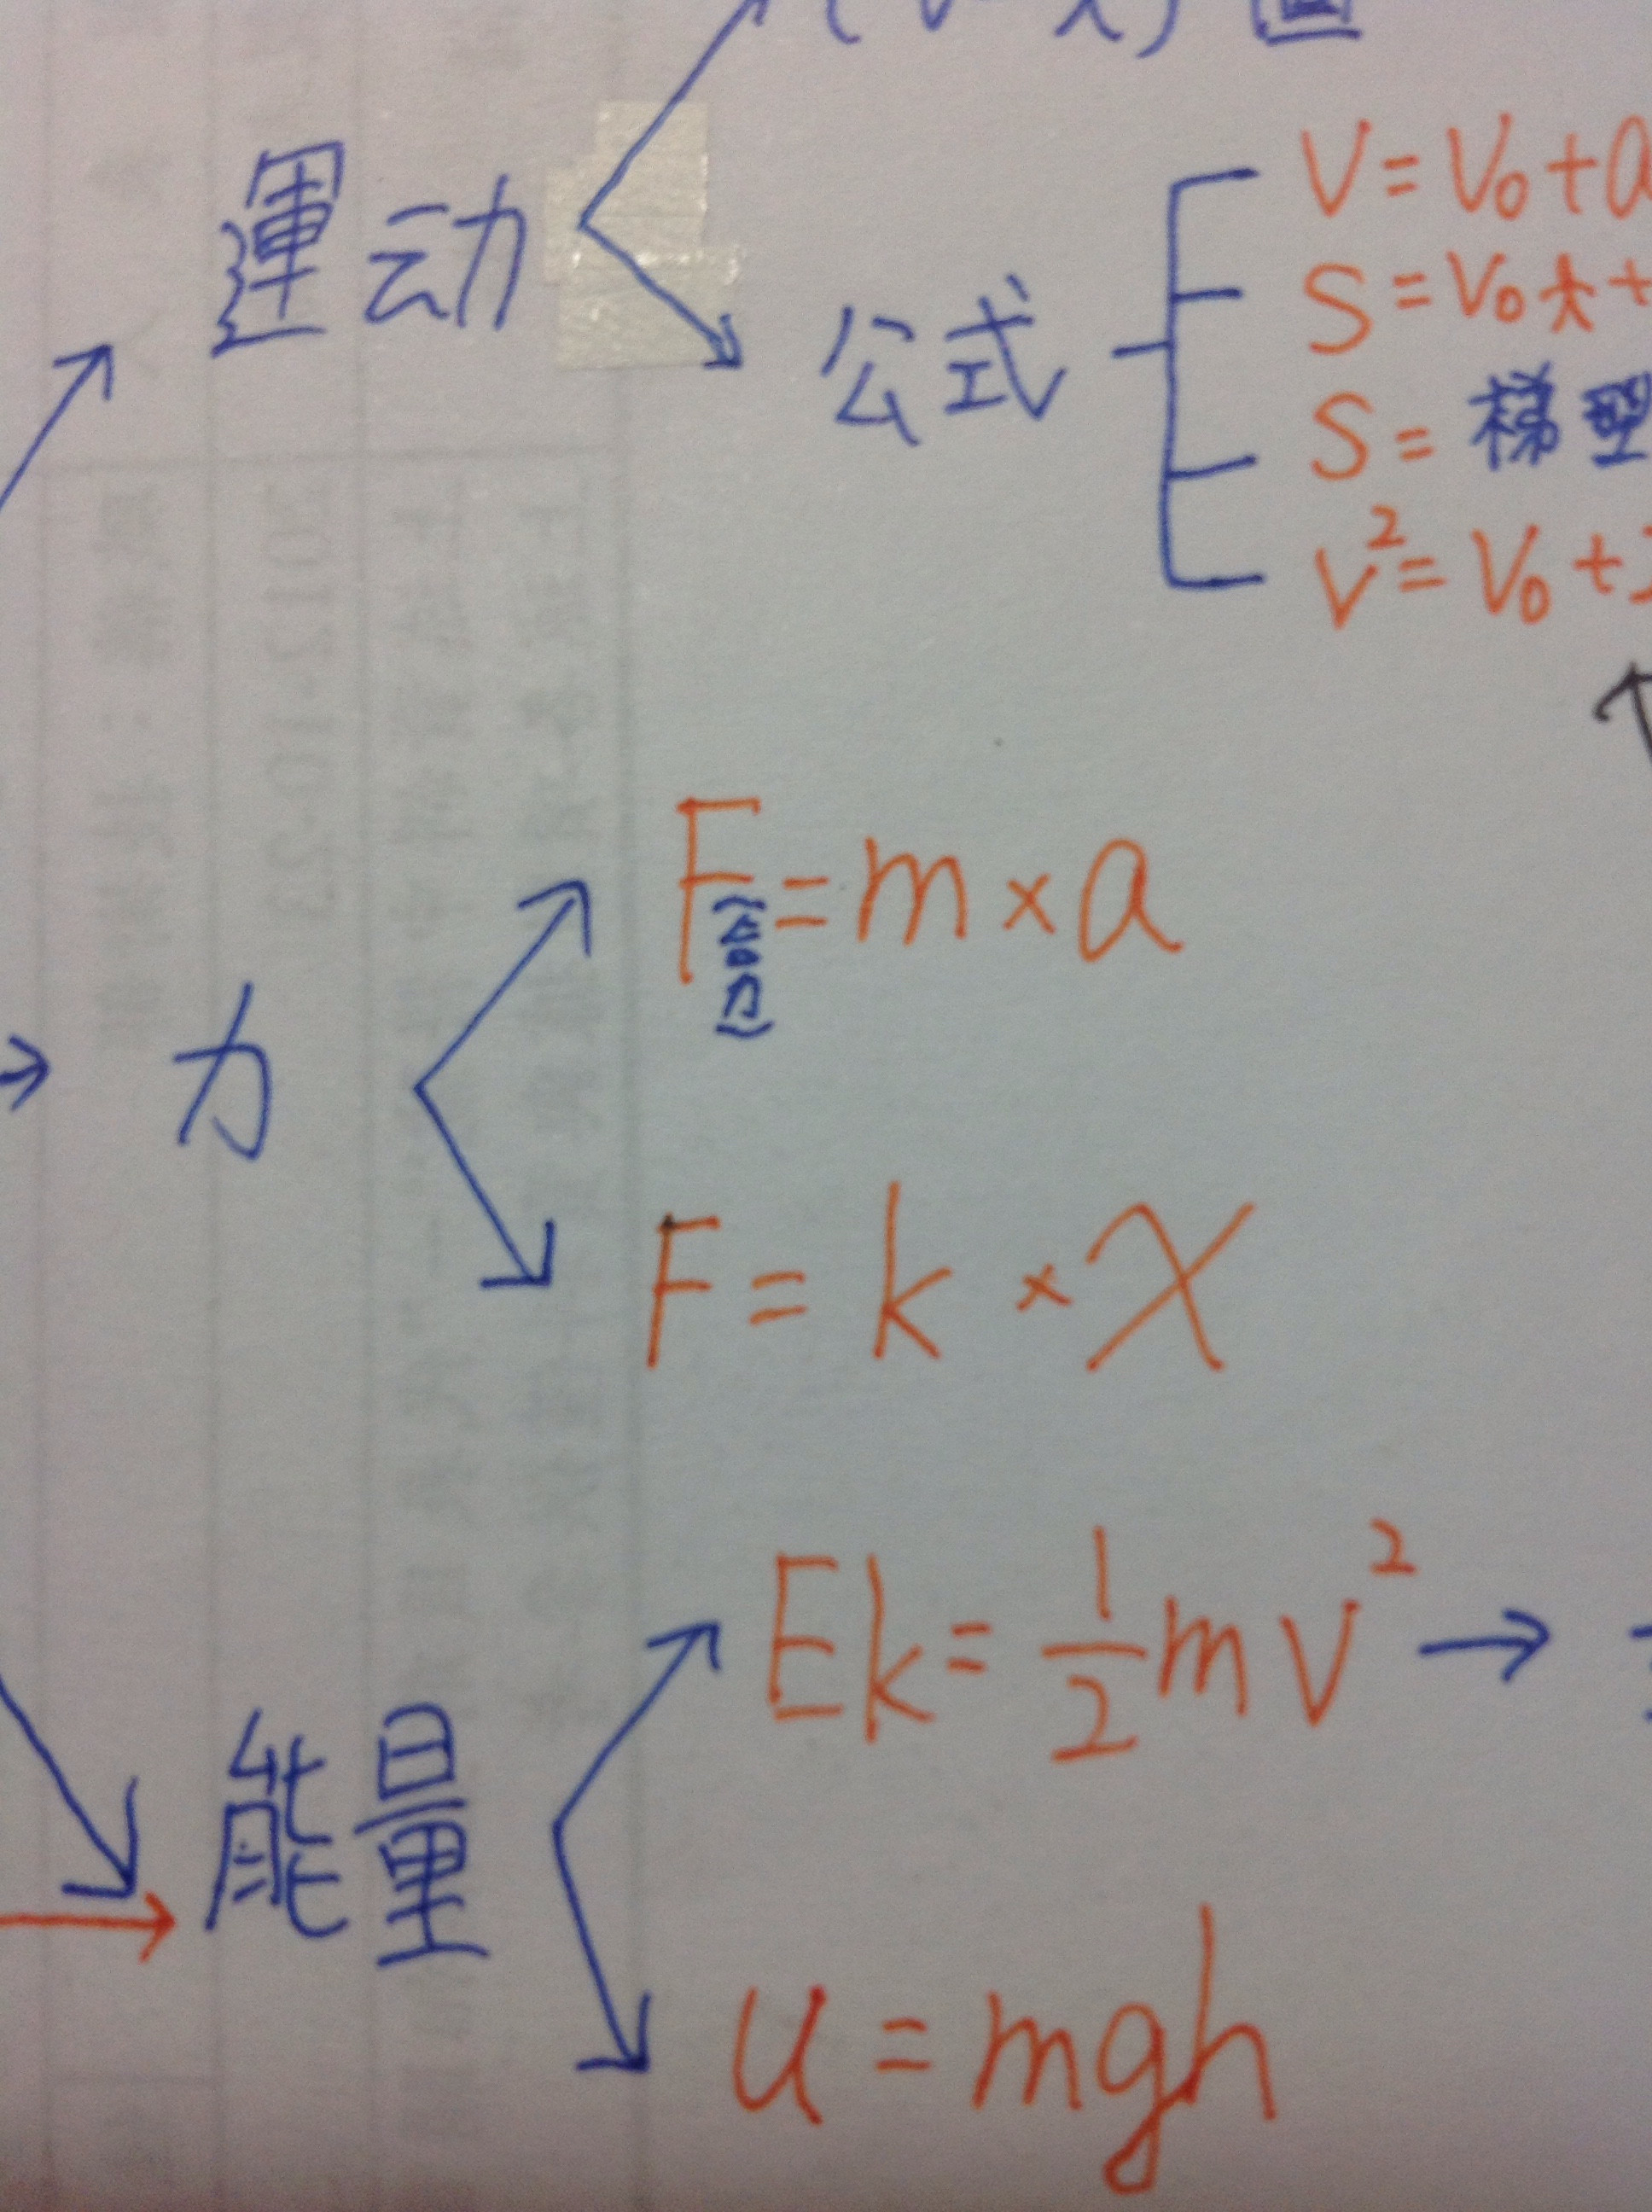 圖
運动
公式
V = V₀ + a
S = V₀t +
S = 梯型
V² = V₀ +
力
F(合力) = m × a
F = k × X
Ek = ½mV²
能量
u = mgh